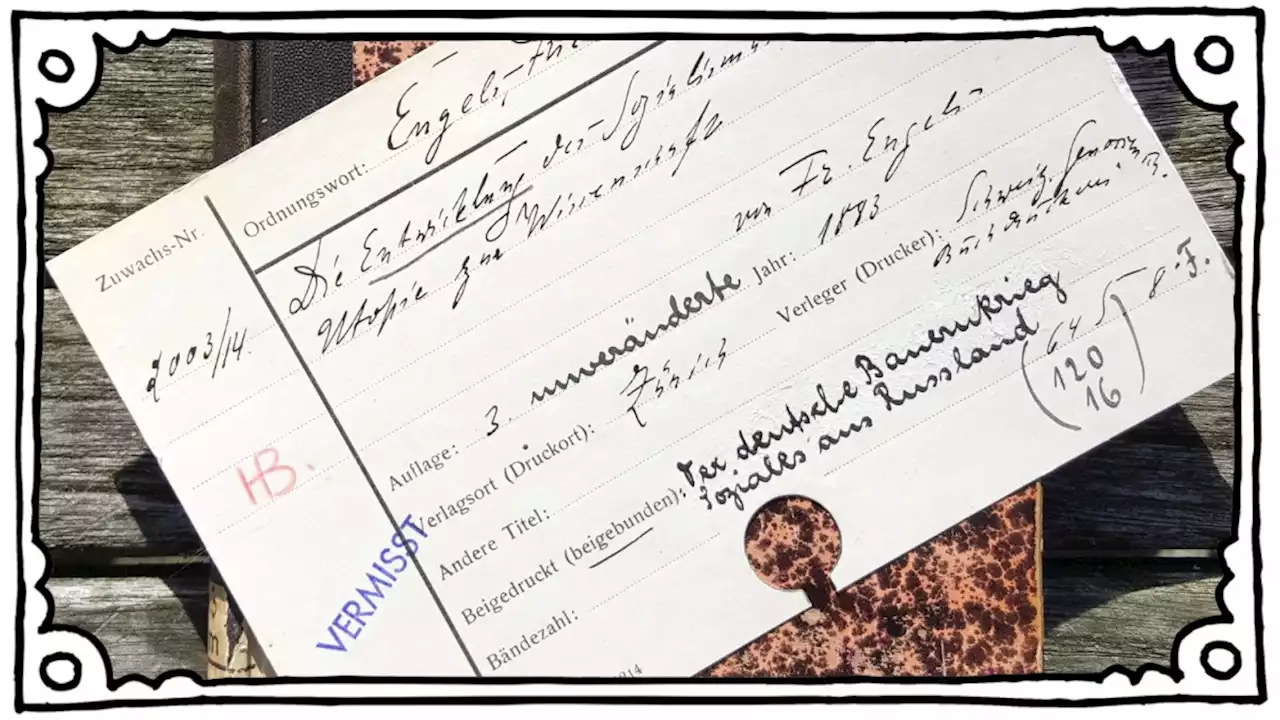 Zuwachs-Nr.
2003/14.
HB.
VERMISST
Ordnungswort: Engels,
Die Entwicklung des Sozialismus
Utopie zur Wissenschaft
von Fr. Engels
Auflage: 3. unveränderte Jahr: 1883
Verlagsort (Druckort): Zürich Verleger (Drucker): Schweiz. Genossensch.
Buchdruckerei
Andere Titel:
Beigedruckt (beigebunden): Der deutsche Bauernkrieg
Soziales aus Russland
Bändezahl:
(645 8-F.
120
16)